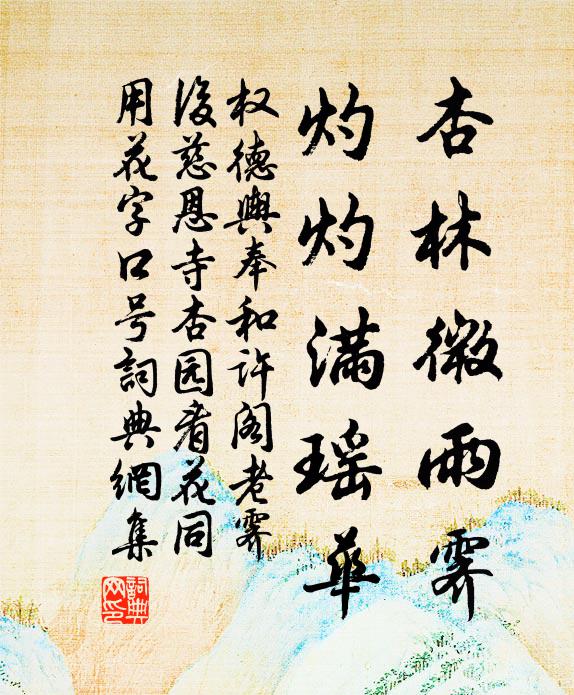 杏林微雨霁
灼灼满瑶华
权德舆奉和许阁老霁
後慈恩寺杏园看花同
用花字口号詞典網集